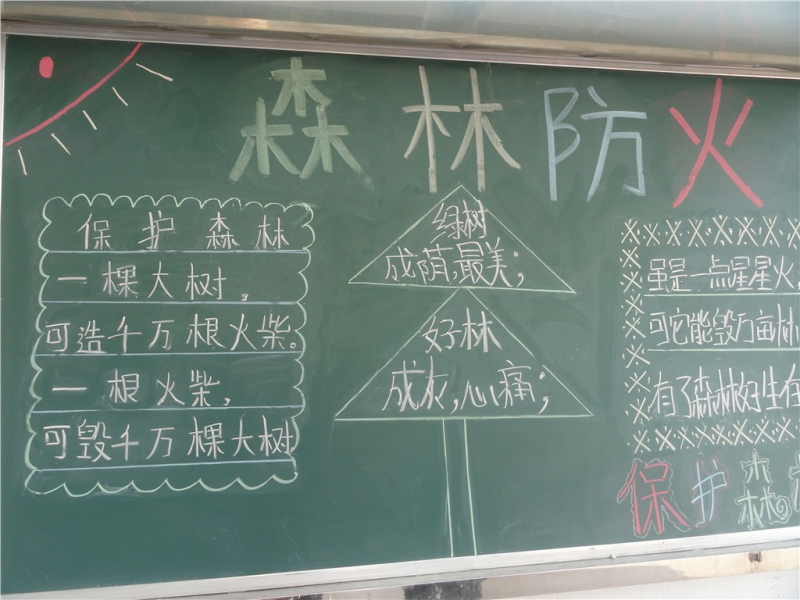 森林防火
保护森林
一棵大树,
可造千万根火柴。
一根火柴,
可毁千万棵大树
绿树
成荫,最美;
好林
成灰,心痛;
虽是一点星星火,
可它能毁万亩林
有了森林好生存
保护森林